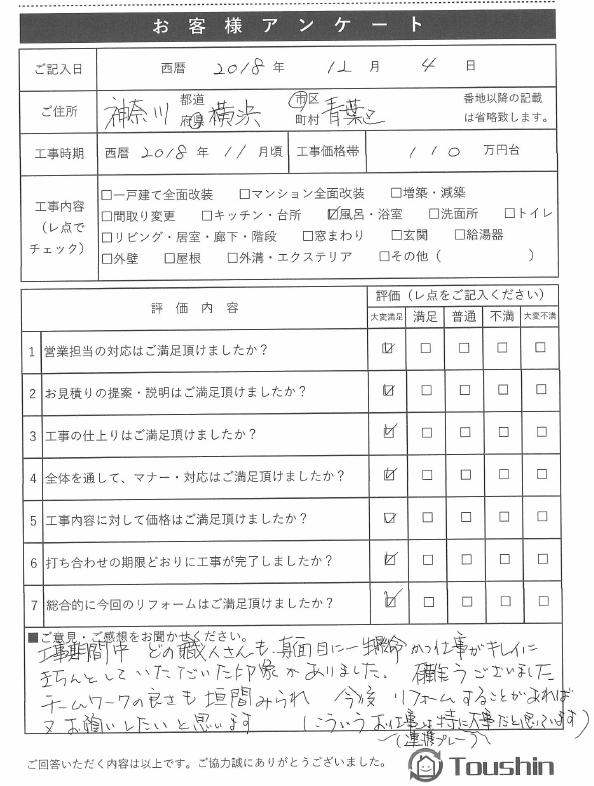 お客様アンケート
ご記入日 西暦 2018 年 12 月 4 日
ご住所 神奈川 都道府県 横浜 市区町村 青葉区 番地以降の記載は省略致します。
工事時期 西暦 2018 年 11 月頃 工事価格帯 110 万円台
工事内容（レ点でチェック）
□一戸建て全面改装 □マンション全面改装 □増築・減築
□間取り変更 □キッチン・台所 ☑風呂・浴室 □洗面所 □トイレ
□リビング・居室・廊下・階段 □窓まわり □玄関 □給湯器
□外壁 □屋根 □外溝・エクステリア □その他（ ）
評価内容 評価（レ点をご記入ください）
大変満足 満足 普通 不満 大変不満
1 営業担当の対応はご満足頂けましたか？ ☑ □ □ □ □
2 お見積りの提案・説明はご満足頂けましたか？ ☑ □ □ □ □
3 工事の仕上りはご満足頂けましたか？ ☑ □ □ □ □
4 全体を通して、マナー・対応はご満足頂けましたか？ ☑ □ □ □ □
5 工事内容に対して価格はご満足頂けましたか？ ☑ □ □ □ □
6 打ち合わせの期限どおりに工事が完了しましたか？ ☑ □ □ □ □
7 総合的に今回のリフォームはご満足頂けましたか？ ☑ □ □ □ □
■ご意見・ご感想をお聞かせください。
工事期間中 どの職人さんも 真面目に一生懸命 かつ仕事がキレイに
きちんとしていただいた印象がありました。 ございました
チームワークの良さも垣間みられ 今後 リフォームすることがあれば
又お願いしたいと思います （こういうお仕事は特に大事だと思っています）
（連携プレー）
ご回答いただく内容は以上です。ご協力誠にありがとうございました。
Toushin